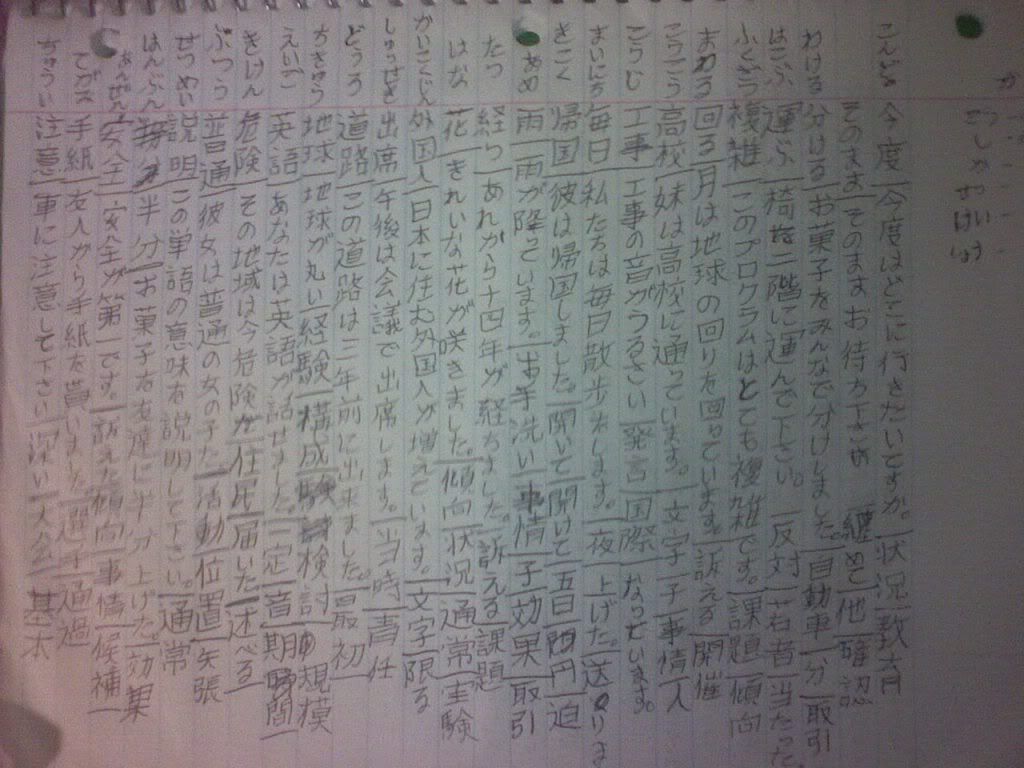 こんど 今度 今度はどこに行きたいですか。 状況 致
そのまま そのままお待ち下さい 纏めて 他 確認
わける 分ける お菓子をみんなで分けました。 自動車 分 取引
はこぶ 運ぶ 椅 二階に運んで下さい。 反対 若者 当たった
ふくざつ 複雑 このプログラムはとても複雑です。 課題 傾向
まわる 回る 月は地球の回りを回っています。 訴える 開催
こうこう 高校 妹は高校に通っています。 文字 子 事情 人
こうじ 工事 工事の音がうるさい 発言 国際 なっています。
まいにち 毎日 私たちは毎日散歩をします。 夜 上げた 送りま
きこく 帰国 彼は帰国しました。 開いて 開けて 五日 円 迫
あめ 雨 雨が降っています。 お手洗い 事情 子 効果 取引
たつ 経つ あれから十四年が経ちました。 訴える 課題
はな 花 きれいな花が咲きました。 傾向 状況 通常 実験
がいこくじん 外国人 日本に住む外国人が増えています。 文字 限る
しゅっせき 出席 午後は会議で出席します。 当時 責任
どうろ 道路 この道路は二年前に出来ました。 最初
ちきゅう 地球 地球が丸い 経験 構成 検討 規模
えいご 英語 あなたは英語が話せました。 定 音 期間
きけん 危険 その地域は今危険が 住 届いた 述べる
ふつう 普通 彼女は普通の女の子た 活動 位置 矢張
せつめい 説明 この単語の意味を説明して下さい。 通常
はんぶん 半分 お菓子を友達に半分上げた。 効果
あんぜん 安全 安全が第一です。 訴えた 傾向 事情 候補
てがみ 手紙 友人から手紙を貰いました。 選手 通過
ちゅうい 注意 車に注意して下さい 深い 大会 基本